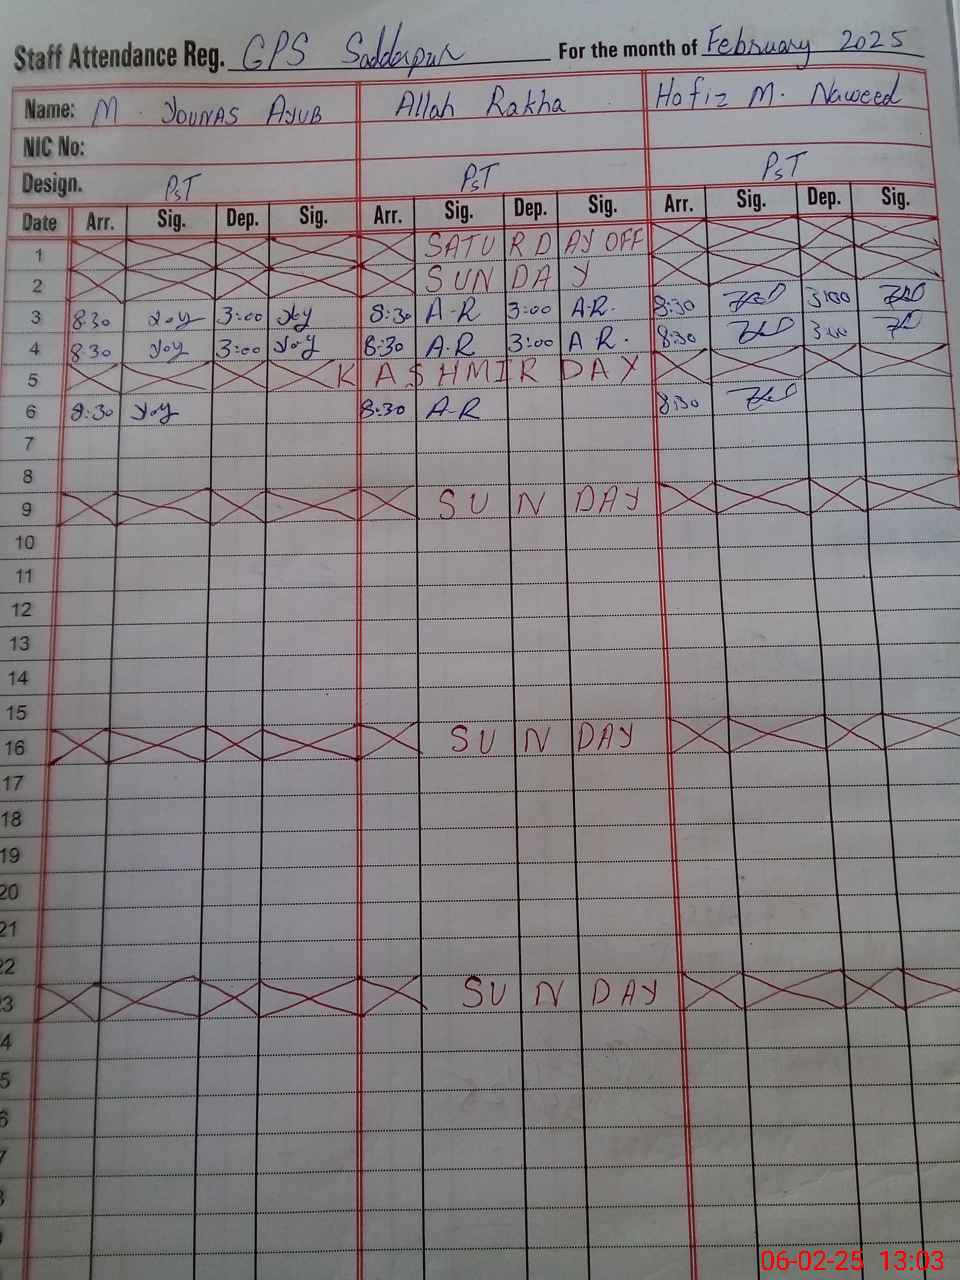 Staff Attendance Reg. GPS Saddarpur For the month of February 2025
Name: M. YOUNAS AYUB Allah Rakha Hafiz M. Naweed
NIC No:
Design. PST PST PST
Date Arr. Sig. Dep. Sig. Arr. Sig. Dep. Sig. Arr. Sig. Dep. Sig.
1 SATURDAY OFF
2 SUNDAY
3 8:30 3:00 8:30 A-R 3:00 A-R. 8:30 3:00
4 8:30 3:00 8:30 A-R 3:00 A R. 8:30 3:00
5 KASHMIR DAY
6 8:30 8:30 A-R 8:30
7
8
9 SUNDAY
10
11
12
13
14
15
16 SUNDAY
17
18
19
20
21
22
23 SUNDAY
4
5
6
7
06-02-25 13:03